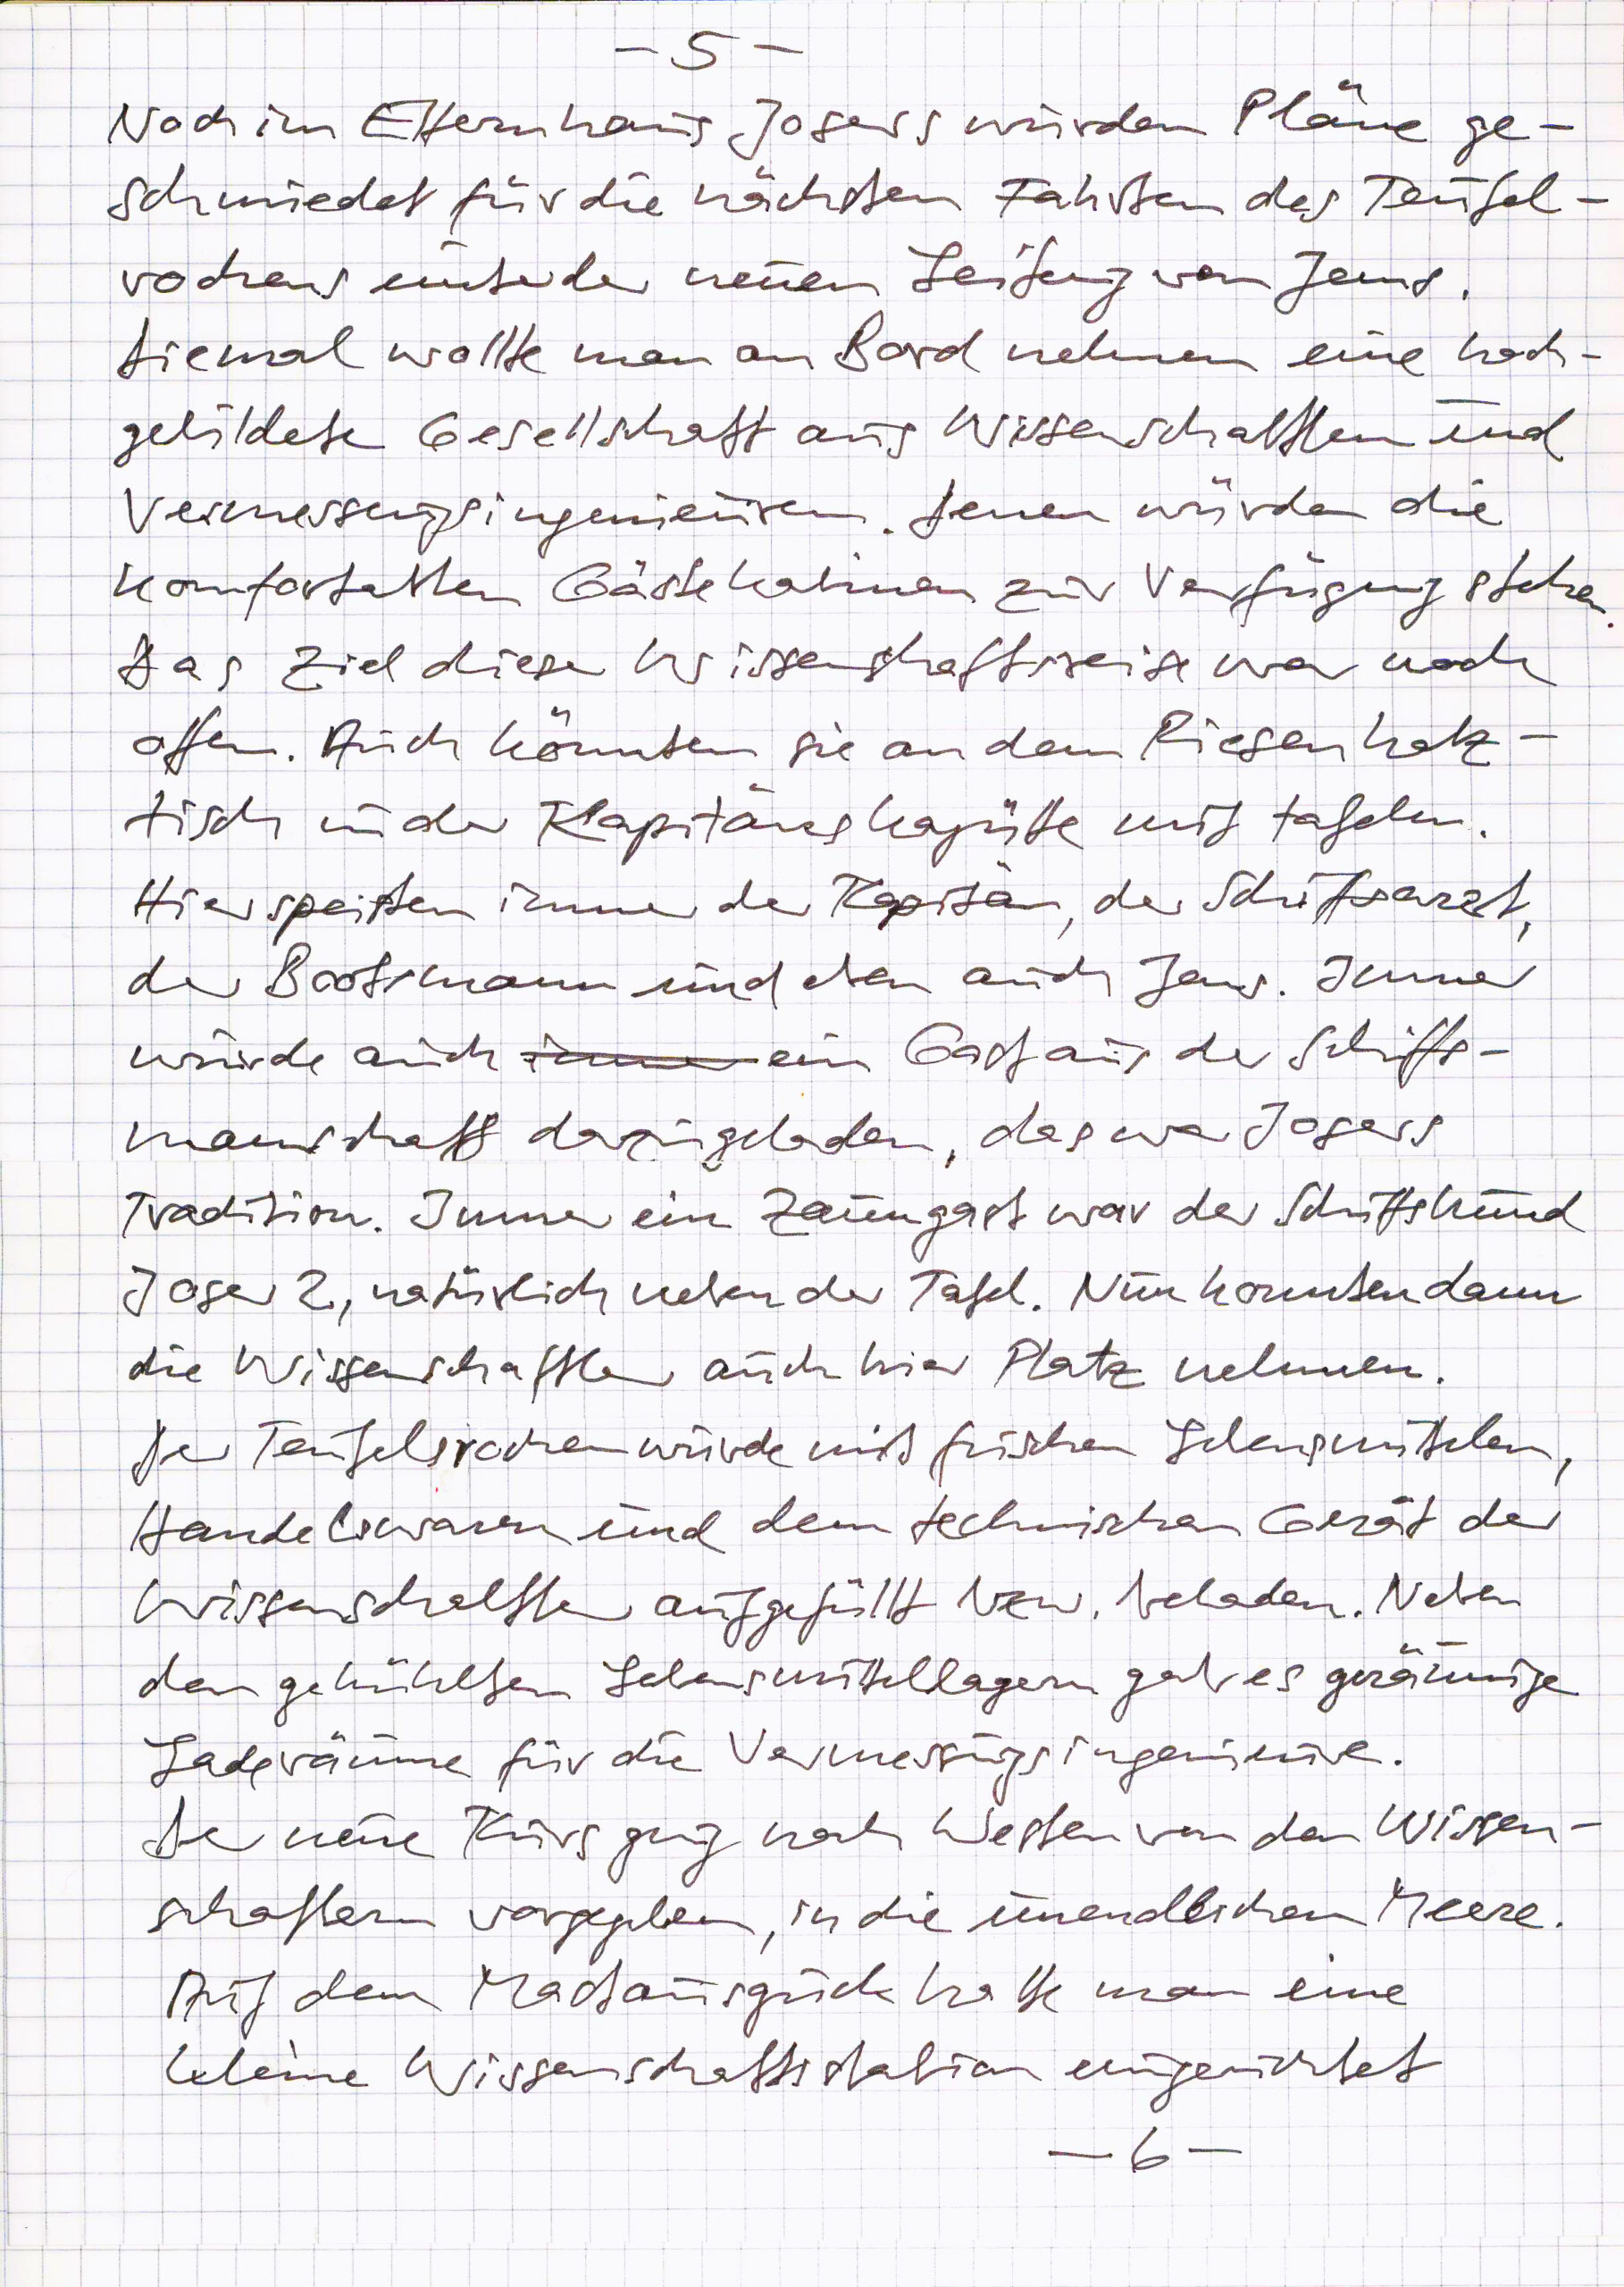 - 5 -
Noch im Elternhaus Josers wurden Pläne ge-
schmiedet für die nächsten Fahrten des Teufel-
rochens unter der neuen Leitung von Jens.
Diemal wollte man an Bord nehmen eine hoch-
gebildete Gesellschaft aus Wissenschaftlern und
Vermessungsingenieuren. Denen würden die
komfortablen Gästekabinen zur Verfügung stehen.
Das Ziel dieser Wissenschaftsreise war noch
offen. Auch könnten sie an dem Riesenholz-
tisch in der Kapitänskajütte mit tafeln.
Hier speisten immer der Kapitän, der Schiffsarzt,
der Bootsmann und eben auch Jens. Immer
wurde auch immer ein Gast aus der Schiffs-
mannschaft dazugeladen, das war Josers
Tradition. Immer ein Zaungast war der Schiffshund
Joser 2, natürlich neben der Tafel. Nun konnten dann
die Wissenschaftler auch hier Platz nehmen.
Der Teufelsrochen wurde mit frischen Lebensmitteln,
Handelswaren und dem technischen Gerät der
Wissenschaftler aufgefüllt bzw. beladen. Neben
den gekühlten Lebensmittellagern gab es geräumige
Laderäume für die Vermessungsingenieure.
Der neue Kurs ging nach Westen von den Wissen-
schaftlern vorgegeben, in die unendlichen Meere.
Auf dem Mastausguck hatte man eine
kleine Wissenschaftsstation eingerichtet
- 6 -